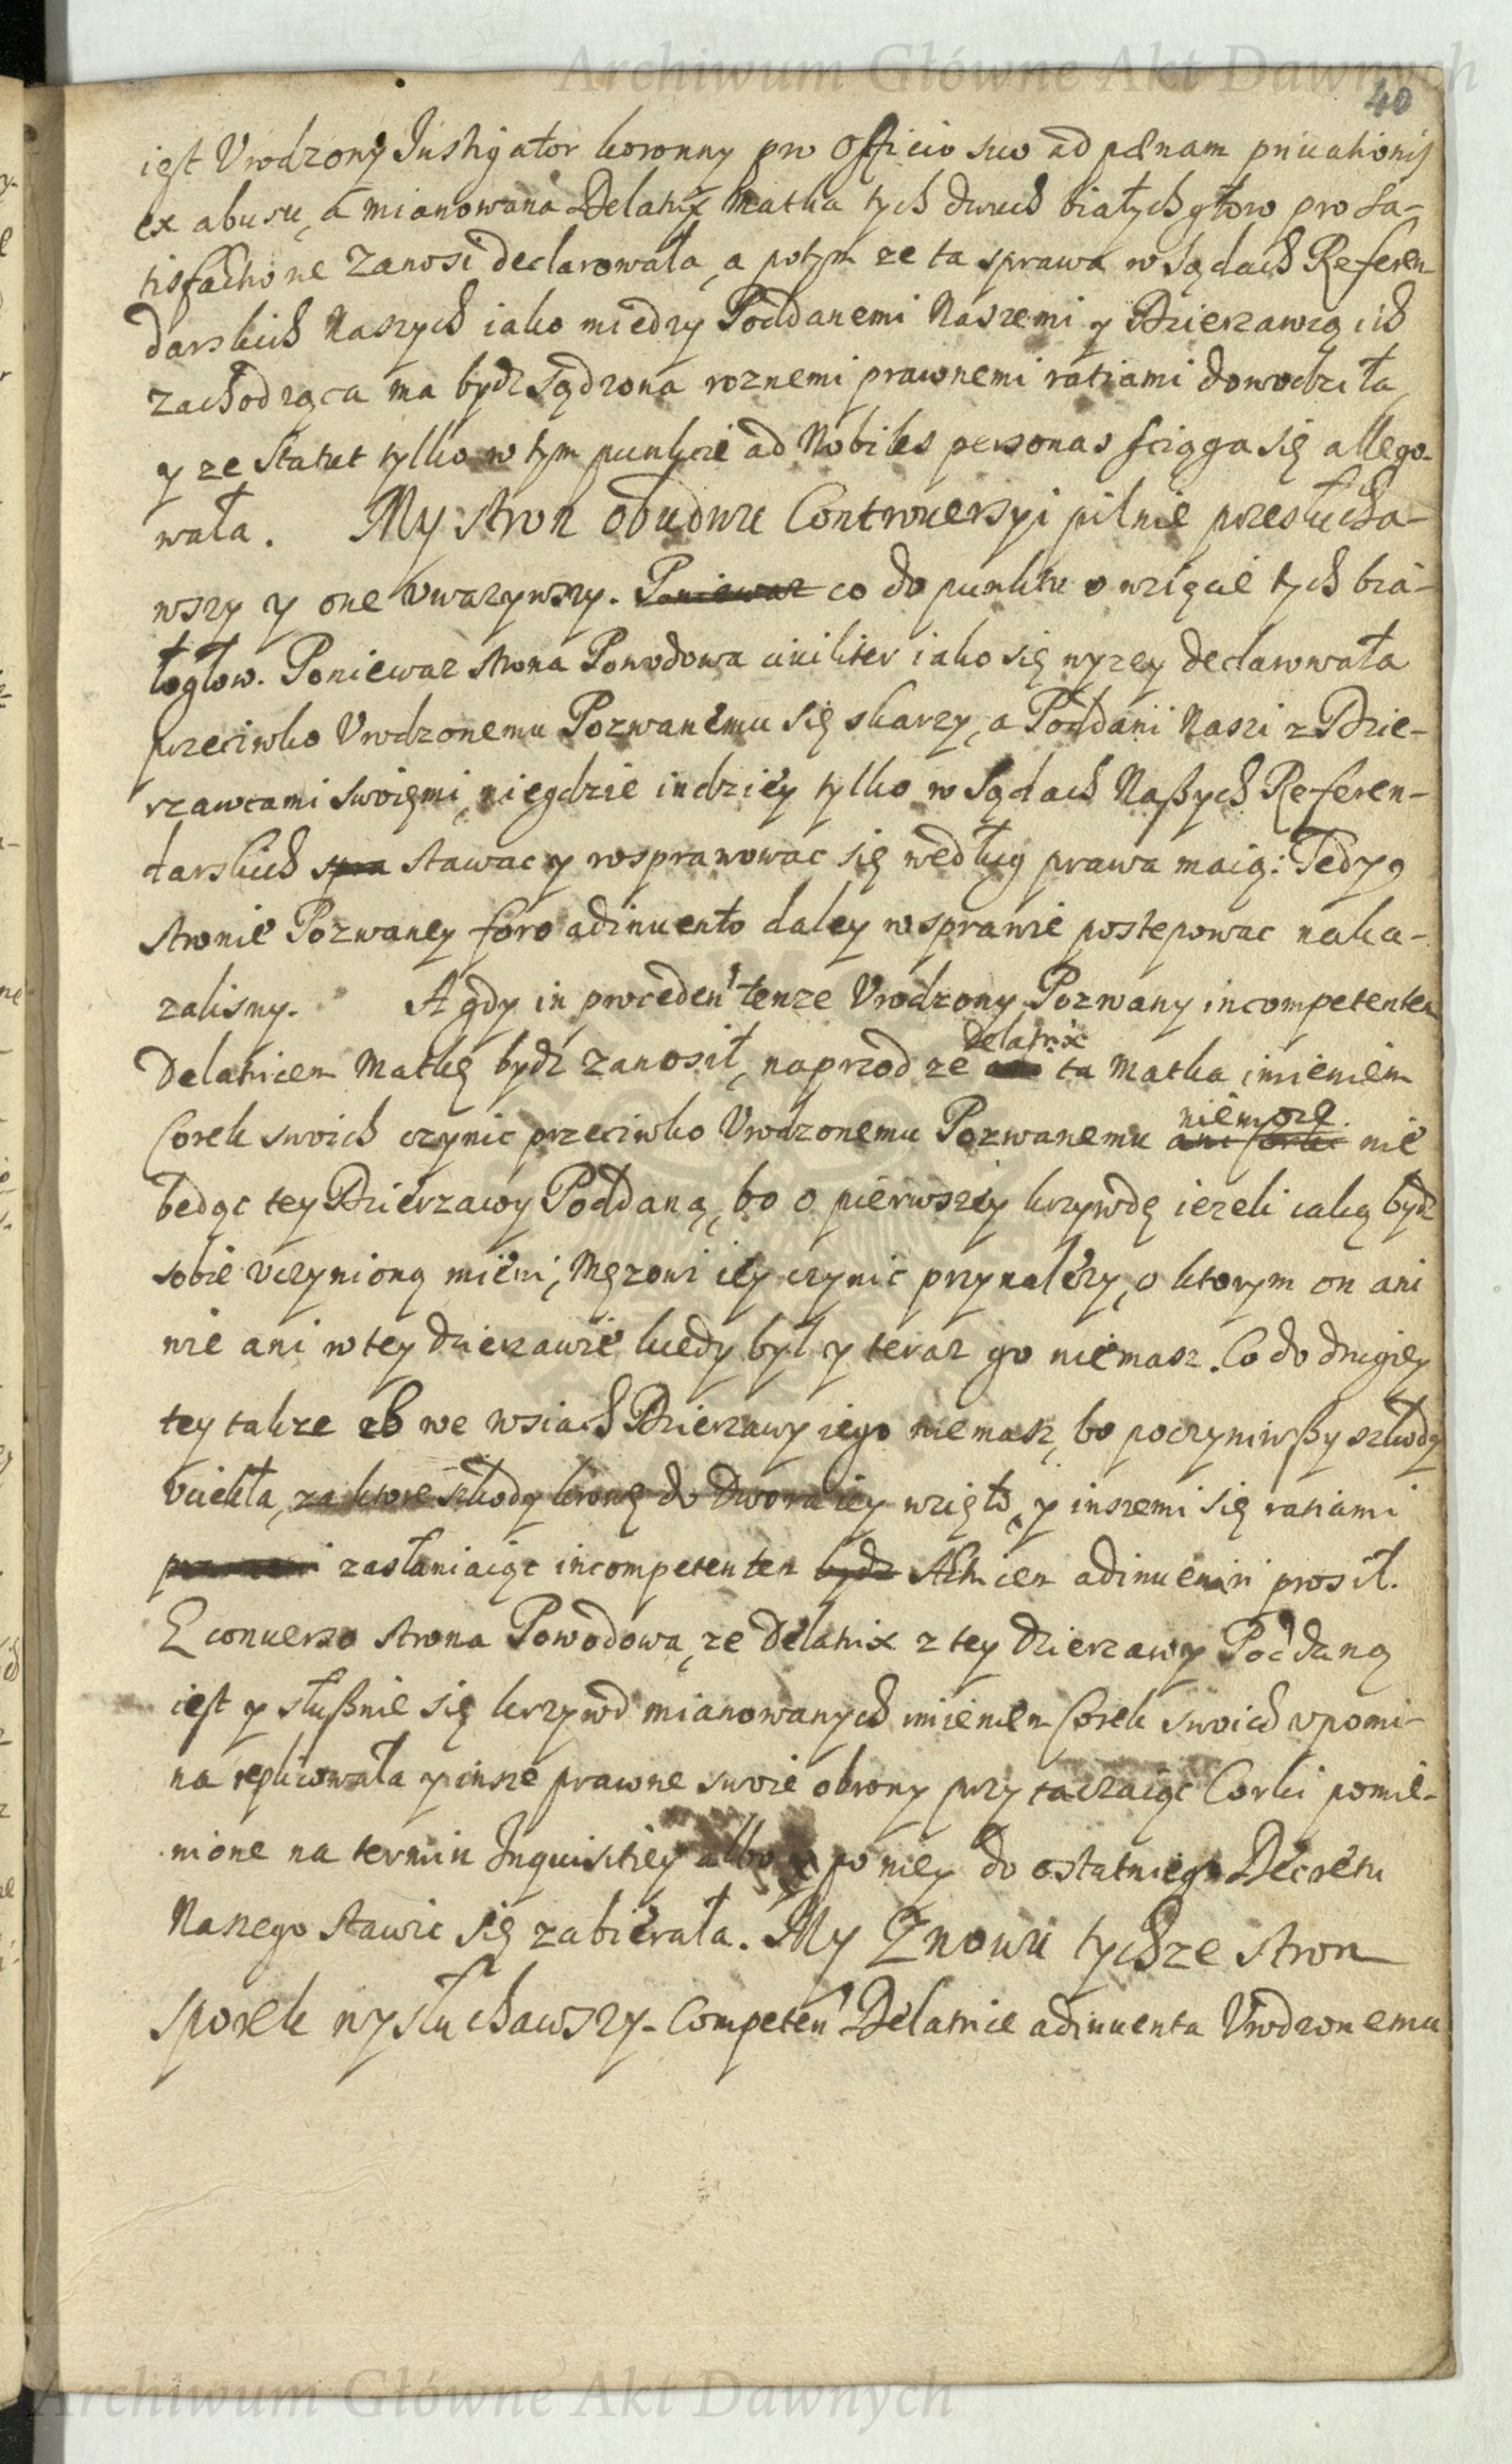 Archiwum Główne Akt Dawnych
40
iest Vrodzony Instigator koronny pro Officio suo ad pænam priuationis
ex abusu, a mianowana Delatrix Matka tych dwuch białychgłow pro sa-
tisfactione zanosi declarowała, a potym ze ta sprawa w Sądach Referen
darskich Naszych iako miedzy Poddanemi Naszemi y Dzierzawcą ich
zachodząca ma bydz sądzona roznemi prawnemi ratiami dowodziła,
y ze Statut tylko w tym punkcie ad Nobiles personas sciąga się allego-
wała. My stron obudwu Controuersyi pilnie przesłucha-
wszy y one vwazywszy. Poniewaz co do punktu o wzięcie tych bia-
łogłow. Poniewaz strona Powodowa ciuiliter iako się wyzey declarowała
przeciwko Vrodzonemu Pozwanemu się skarzy, a Poddani Naszi z Dzie-
rzawcami swoięmi, niegdzie indziey tylko w Sądach Naszych Referen-
darskich spra stawac y rosprawowac się według prawa maią: Tedy
stronie Pozwaney foro adinuento daley w sprawie postepowac naka-
zalismy. A gdy in proceden' tenze Vrodzony Pozwany incompetentem
Delatrix
Delatricem Matkę bydz zanosił, naprzod ze ta Matka imieniem
niemoze
Corek swoich czynic przeciwko Vrodzonemu Pozwanemu ani Corki nie
bedąc tey Dzierzawy Poddaną, bo o pierwszey krzywdę iezeli iaką bydz
sobie vczynioną mieni, Męzowi iey czynic przynalezy, o ktorym on ani
wie ani w tey dzierzawie kiedy był y teraz go niemasz. Co do drugiey
tey takze we wsiach Dzierzawy iego niemasz, bo poczyniwszy szkody
vciekła, za ktore szkody krowę do Dwora iey wzięto, y inszemi się ratiami
zasłaniaiąc incompetentem bydz Actricem adinueniri prosił.
E conuerso strona Powodowa, ze Delatrix z tey dzierzawy Poddaną
iest y słusznie się krzywd mianowanych imieniem Corek swoich vpomi-
na replicowała y insze prawne swoie obrony przytaczaiąc Corki pomie-
nione na termin Inquisitiey albo y po niey do ostatniego Decretu
Naszego stawic się zabierała. My Znowu tychze stron
sporek wysłuchawszy. Competen' Delatrice adinuenta Vrodzonemu
Archiwum Główne Akt Dawnych